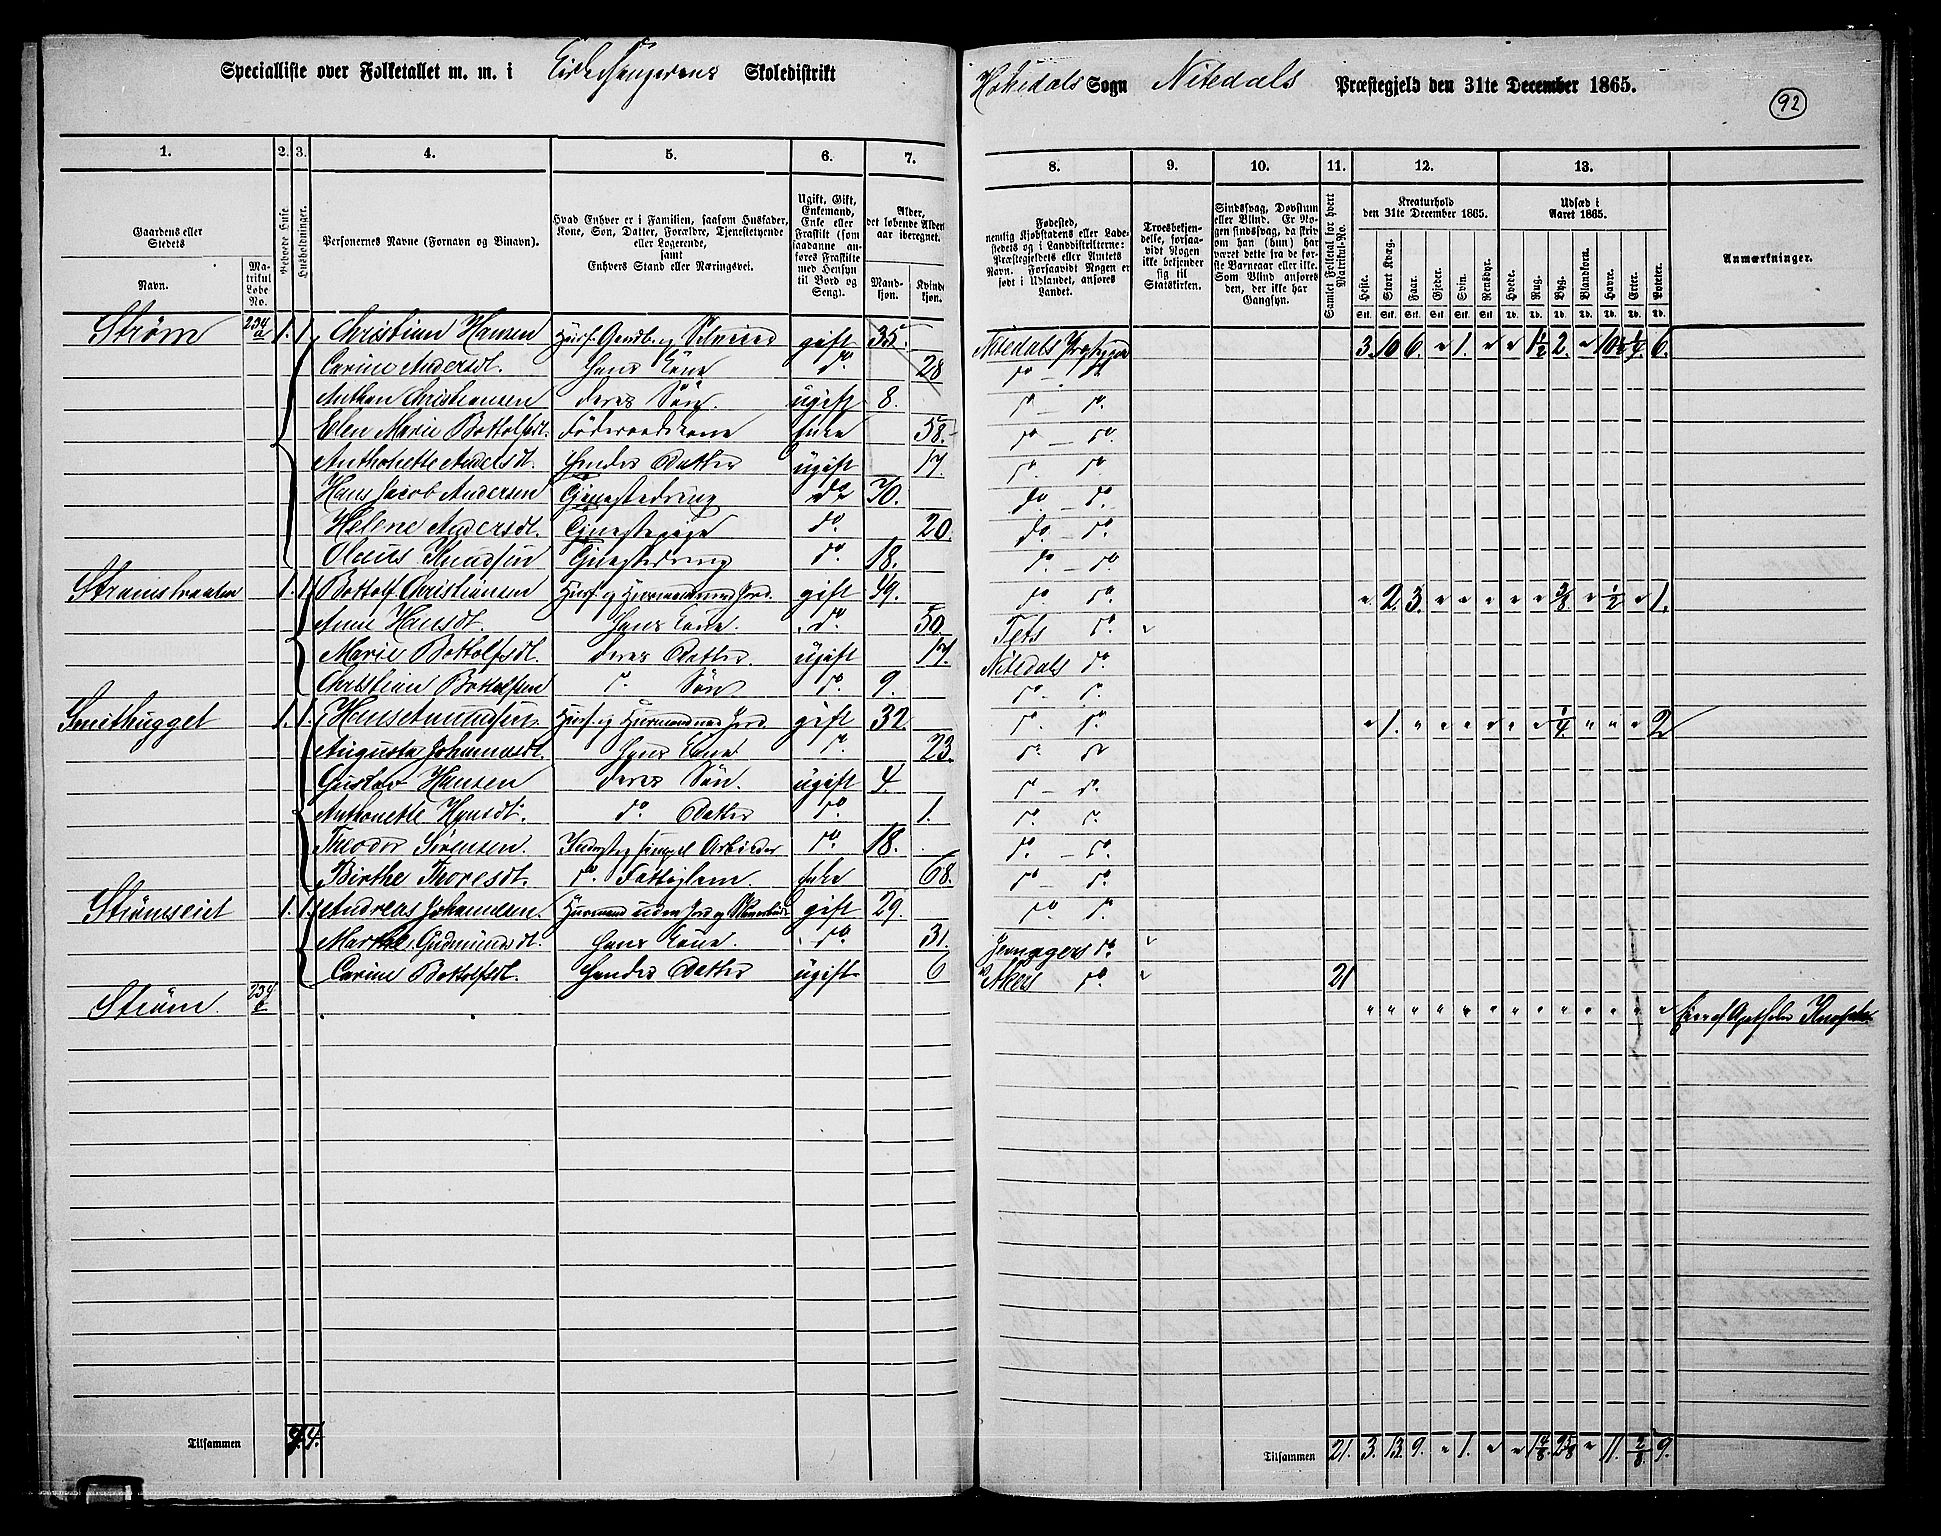 Specialliste over Folketallet m. m. i Kirkesangerens Skoledistrikt
Hakedals Sogn Nitedals Præstegjeld den 31te December 1865.
92
1. 2. 3. 4. 5. 6. 7. 8. 9. 10. 11. 12. 13.
Gaardens eller Stedets
Navn.
Matrikul Løbe No.
Beboede Huse
Husholdninger.
Personernes Navne (Fornavn og Binavn).
Hvad Enhver er i Familien, saasom Husfader, Kone, Søn, Datter, Forældre, Tjenestetyende eller Logerende,
samt
Enhvers Stand eller Næringsvei.
Ugift, Gift, Enkemand, Enke eller Fraskilt (som saadanne anføres Fraskilte med Hensyn til Bord og Seng).
Alder, det løbende Alders aar iberegnet.
Mandkjøn. Kvindekjøn.
Fødested, nemlig Kjøbstadens eller Ladestedets og i Landdistrikterne: Præstegjeldets eller Amtets Navn. Forsaavidt Nogen er født i Udlandet, anføres Landet.
Troesbekjendelse, forsaavidt Nogen ikke bekjender sig til Statskirken.
Sindssvag, Døvstum eller Blind. Er Nogen sindssvag, da skriv om han (hun) har været dette fra de første Barneaar eller ikke. Som Blind anføres den, der ikke har Gangsyn.
Samlet Folketal for hvert Matrikul-No.
Kreaturhold den 31te December 1865.
Udsæd i Aaret 1865.
Anmærkninger.
Heste. Stort Kvæg. Faar. Gjeder. Svin. Rensdyr. Hvede. Rug. Byg. Blandkorn. Havre. Erter. Poteter.
Stk. Stk. Stk. Stk. Stk. Stk. Td. Td. Td. Td. Td. Td. Td.
Strøm 234 a 1. 1. Christian Hansen Husf. Gaardb. og Selveier gift 35. Nitedals Præstegjeld 3. 10 6. " 1. " " 1 1/2 2. " 10 1/2 1/4 6.
Carine Andersdt. Hans Kone do. 28 do - do
Anthon Christiansen deres Søn. ugift 8. do - do.
Elen Marie Bottolfsdt. Føderaadskone Enke 58. do - do.
Anthonette Andersdt. Hendes Datter ugift 17. do do.
Hans Jacob Andersen Tjenestedreng do 30. do do.
Helene Andersdt. Tjenestepige do. 20. do. - do.
Olaus Knudsen Tjenestedreng do. 18. do - do
1. 1. Bottolf Christiansen Husf. og Husmand med Jord. gift 49. do. do. " 2. 3. " " " " " 3/8 " 1/2 " 1.
Anne Hansdt. Hans Kone. do. 50 Fets do. "
Marie Bottolfsdt. deres Datter. ugift 17. Nitedals do.
Christian Bottolfsen do. Søn do. 9. do - do.
Smithugget 1. 1. Hans Amundsen. Husf. og Husmand med Jord gift 32. do. do. " 1. " " " " " " 1/4. " " " 2
Augusta Johannesdt. Hans Kone do. 23. do do
Gustav Hansen deres Søn. ugift 4. do - do.
Anthonette Hansdt. do. Datter do. 1. do. do.
Theodor Sørensen. Arbeider do. 18. do. - do.
Birthe Thoresdt. do. Fattiglem. Enke 68. do - do.
Strømseiet 1. 1. Andreas Johannesen. Husmand uden Jord og gift 29. do. do.
Marthe Gudmundsdt. Hans Kone. do. 31. do "
Carine Bottolfsdt. Hendes Datter ugift 6 Akers do. " 21
Strøm. 234 b " " " " " " " " " " " " " Eies af Apotheker
Tilsammen 4. 4.
Tilsammen 21. 3. 13. 9. " 1. " " 1 4/8. 2 5/8 " 11. 2/8. 9.